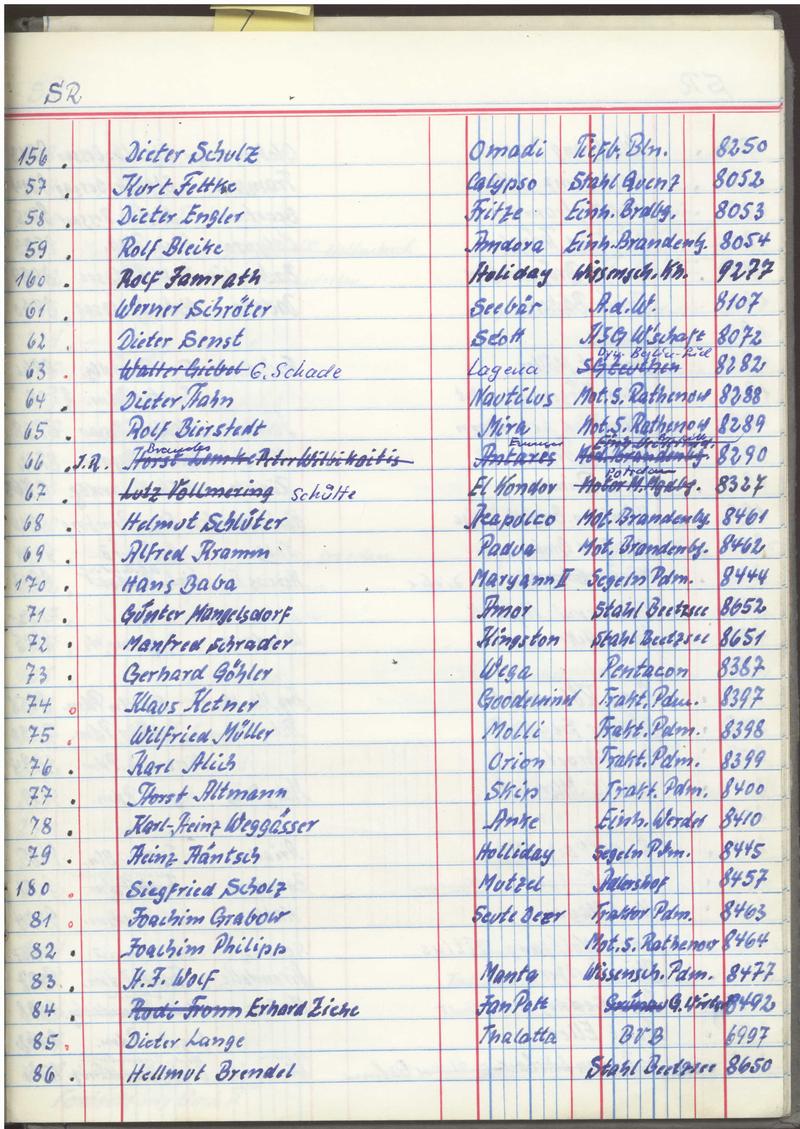 7
SR
156 . Dieter Schulz Omadi Tiefb. Bln. 8250
57 . Kurt Feltke Calypso Stahl Quenz 8052
58 . Dieter Engler Fritze Einh. Brdbg. 8053
59 . Rolf Bleike Amdora Einh. Brandenbg. 8054
160 . Rolf Jamrath Holiday Wissensch. Kh. 9277
61 . Werner Schröter Seebär A.d.W. 8107
62 . Dieter Senst Scott HSG W'schaft 8072
63 . Walter Giebel G. Schade Lagena 8282
64 . Dieter Hahn Nautilus Mot. S. Rathenow 8288
65 . Rolf Bürstedt Mira Mot. S. Rathenow 8289
Brandes
66 . J.R. Horst Peter Wilbikaitis Antares Med. Brandenbg. 8290
Potsdam
67 . Lutz Vollmering Schütte El Kondor Motor M. Mgdbg. 8327
68 . Helmut Schlüter Acapolco Mot. Brandenbg. 8461
69 . Alfred Kramm Padua Mot. Brandenbg. 8462
170 . Hans Baba Maryann II Segeln Pdm. 8444
71 . Günter Mangelsdorf Amor Stahl Beetzsee 8652
72 . Manfred Schrader Kingston Stahl Beetzsee 8651
73 . Gerhard Göhler Wega Pentacon 8387
74 . Klaus Ketner Goodewind Trakt. Pdm. 8397
75 . Wilfried Müller Molli Trakt. Pdm. 8398
76 . Karl Alich Orion Trakt. Pdm. 8399
77 . Horst Altmann Skip Trakt. Pdm. 8400
78 . Karl-Heinz Weggässer Anke Einh. Werder 8410
79 . Heinz Häntsch Holliday Segeln Pdm. 8445
180 . Siegfried Scholz Mutzel Adlershof 8457
81 . Joachim Grabow Seute Deer Traktor Pdm. 8463
82 . Joachim Philipp Mot. S. Rathenow 8464
83 . H. F. Wolf Manta Wissensch. Pdm. 8477
84 . Erhard Ziche Jan Pott Grünau 8492
85 . Dieter Lange Thalatta BVB 6997
86 . Hellmut Brendel Stahl Beetzsee 8650